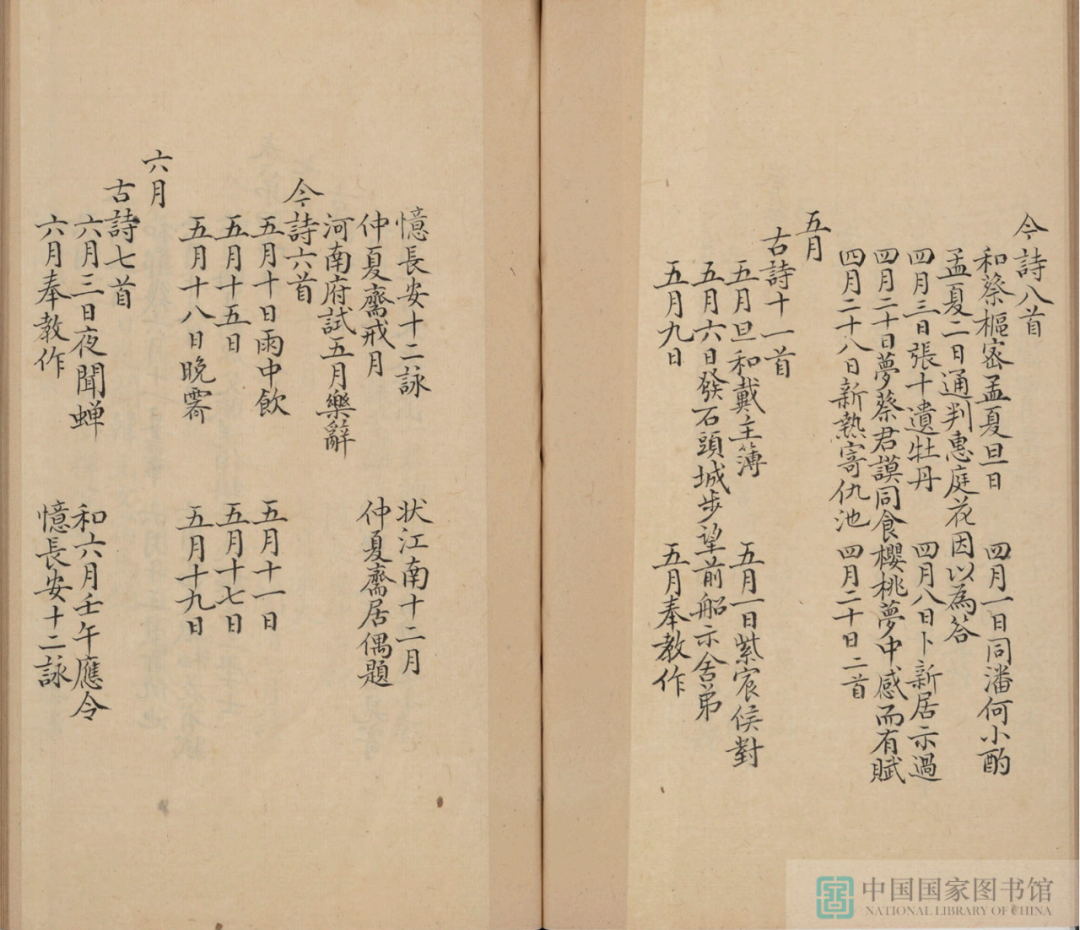 今詩八首
和蔡樞密孟夏旦日 四月一日同潘何小酌
孟夏二日通判惠庭花因以為答
四月三日張十遺牡丹 四月八日卜新居示過
四月二十日夢蔡君謨同食櫻桃夢中感而有賦
四月二十八日新熱寄仇池 四月二十日二首
五月
古詩十一首
五月旦和戴主簿 五月一日紫宸侯對
五月六日發石頭城步望前船示舍弟
五月九日 五月奉教作
憶長安十二詠 状江南十二月
仲夏齋戒月 仲夏齋居偶題
河南府試五月樂辭
今詩六首
五月十日雨中飲 五月十一日
五月十五日 五月十七日
五月十八日晚霽 五月十九日
六月
古詩七首
六月三日夜聞蟬 和六月壬午應令
六月奉教作 憶長安十二詠
中国国家图书馆
NATIONAL LIBRARY OF CHINA